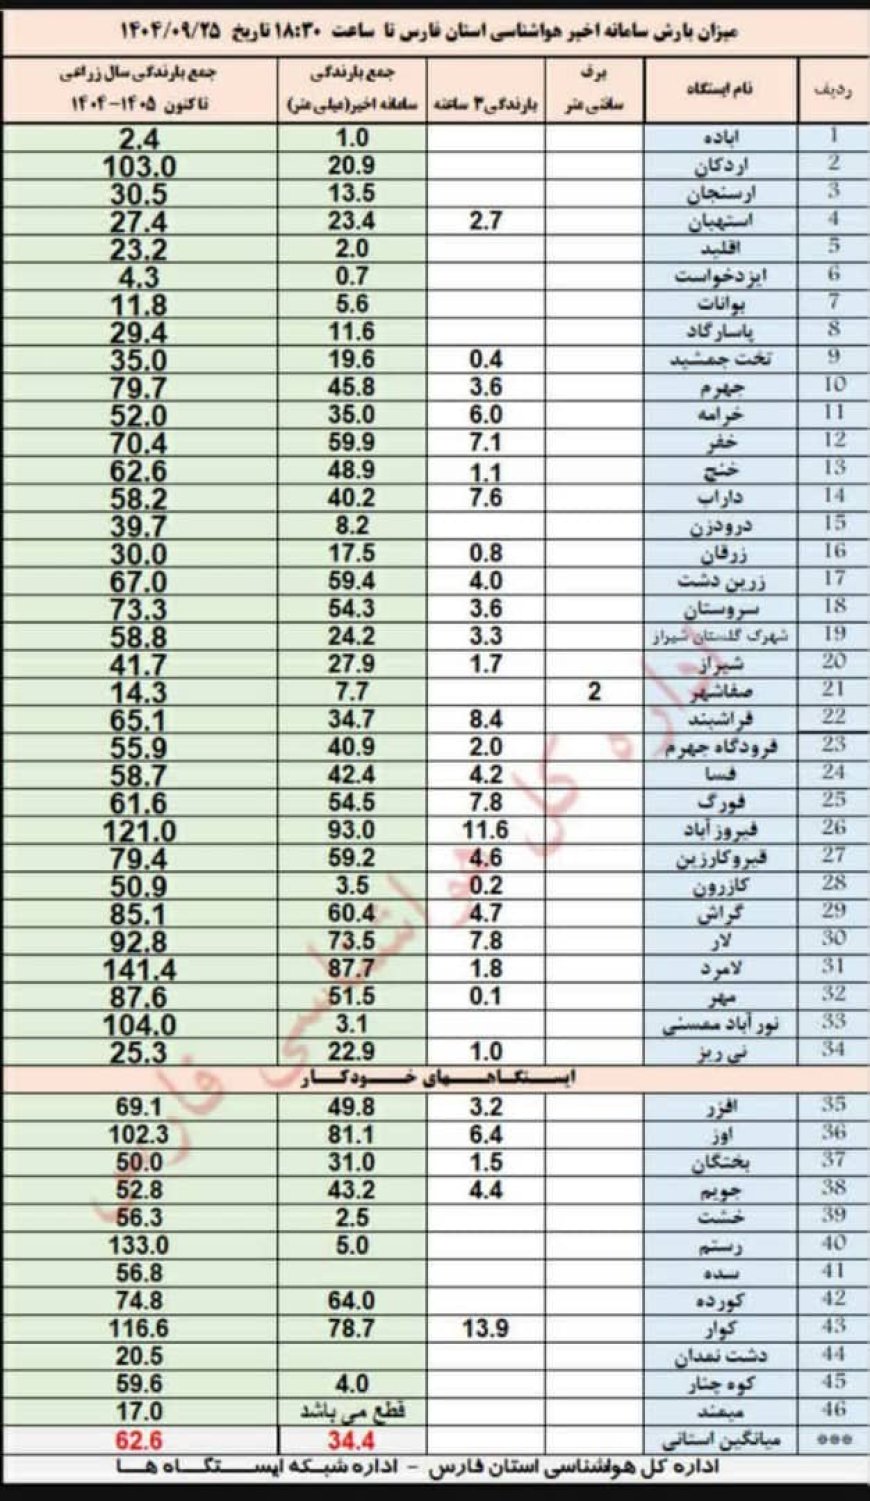 میزان بارش سامانه اخیر هواشناسی استان فارس تا ساعت ۱۸:۳۰ تاریخ ۱۴۰۴/۰۹/۲۵
ردیف نام ایستگاه برف سانتی متر بارندگی ۳ ساعته جمع بارندگی سامانه اخیر(میلی متر) جمع بارندگی سال زراعی تاکنون ۱۴۰۵-۱۴۰۴
1 اباده 1.0 2.4
2 اردکان 20.9 103.0
3 ارسنجان 13.5 30.5
4 استهبان 2.7 23.4 27.4
5 اقلید 2.0 23.2
6 ایزدخواست 0.7 4.3
7 بوانات 5.6 11.8
8 پاسارگاد 11.6 29.4
9 تخت جمشید 0.4 19.6 35.0
10 جهرم 3.6 45.8 79.7
11 خرامه 6.0 35.0 52.0
12 خفر 7.1 59.9 70.4
13 خنج 1.1 48.9 62.6
14 داراب 7.6 40.2 58.2
15 درودزن 8.2 39.7
16 زرقان 0.8 17.5 30.0
17 زرین دشت 4.0 59.4 67.0
18 سروستان 3.6 54.3 73.3
19 شهرک گلستان شیراز 3.3 24.2 58.8
20 شیراز 1.7 27.9 41.7
21 صفاشهر 2 7.7 14.3
22 فراشبند 8.4 34.7 65.1
23 فرودگاه جهرم 2.0 40.9 55.9
24 فسا 4.2 42.4 58.7
25 فورگ 7.8 54.5 61.6
26 فیروز آباد 11.6 93.0 121.0
27 قیروکارزین 4.6 59.2 79.4
28 کازرون 0.2 3.5 50.9
29 گراش 4.7 60.4 85.1
30 لار 7.8 73.5 92.8
31 لامرد 1.8 87.7 141.4
32 مهر 0.1 51.5 87.6
33 نور آباد ممسنی 3.1 104.0
34 نی ریز 1.0 22.9 25.3
ایستگاههای خودکار
35 افزر 3.2 49.8 69.1
36 اوز 6.4 81.1 102.3
37 بختگان 1.5 31.0 50.0
38 جویم 4.4 43.2 52.8
39 خشت 2.5 56.3
40 رستم 5.0 133.0
41 سده 56.8
42 کورده 64.0 74.8
43 کوار 13.9 78.7 116.6
44 دشت نمدان 20.5
45 کوه چنار 4.0 59.6
46 میمند قطع می باشد 17.0
*** میانگین استانی 34.4 62.6
اداره کل هواشناسی استان فارس - اداره شبکه ایستگاه ها
اداره کل هواشناسی فارس